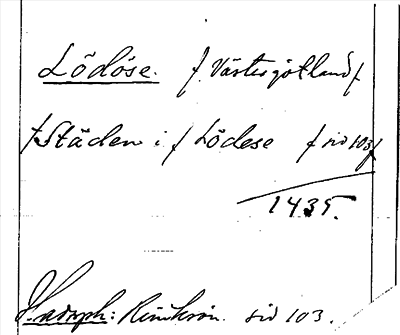 Lödöse. /Västergötland/
/Städen i/ Lödese /sid 103/
1435.
Hadorph: Rimkrön. sid 103.